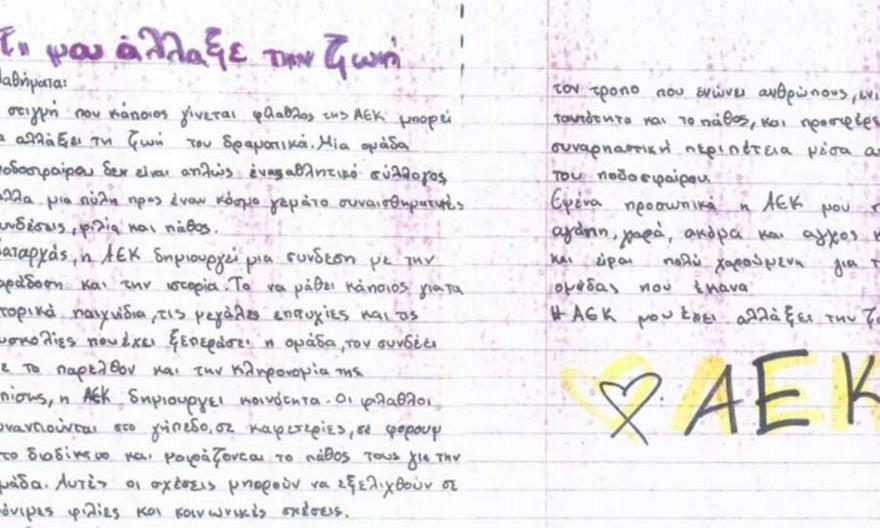 Τι μου άλλαξε την ζωή
αθήματα:
στιγμή που κάποιος γίνεται φίλαθλος της ΑΕΚ μπορεί
αλλάξει τη ζωή του δραματικά. Μία ομάδα
οδοσφαίρου δεν είναι απλώς ένας αθλητικό σύλλογος
αλλα μια πύλη προς έναν κόσμο γεμάτο συναισθηματικές
υνδέσεις, φιλία και πάθος.
αταρχάς, η ΑΕΚ δημιουργεί μια συνδεση με την
αράδοση και την ιστορία. Το να μάθει κάποιος για τα
τορικά παιχνίδια, τις μεγάλες επιτυχίες και τις
υσκολίες που έχει ξεπεράσει η ομάδα, τον συνδέει
ε το παρελθον και την κληρονομία της
πίσης, η ΑΕΚ δημιουργει κοινότητα. Οι φίλαθλοι
υναντιούνται στο γήπεδο, σε καφετερίες, σε φορουμ
το διαδίκτυο και μοιράζονται το πάθος τους για την
μάδα. Αυτές οι σχέσεις μπορούν να εξελιχθούν σε
όνιμες φιλίες και κοινωνικές σχέσεις.
τον τροπο που ενώνει ανθρώπους, ενι
ταυτότητα και το πάθος, και προσφέρε
συναρπαστική περιπέτεια μέσα α
του ποδοσφαίρου.
Εμένα προσωπικά η ΑΕΚ μου
αγάπη, χαρά, ακόμα και αγχος κ
και είμαι πολύ χαρούμενη για τ
ομάδας που έκανα
Η ΑΕΚ μου έχει αλλάξει την ζω
ΑΕΚ